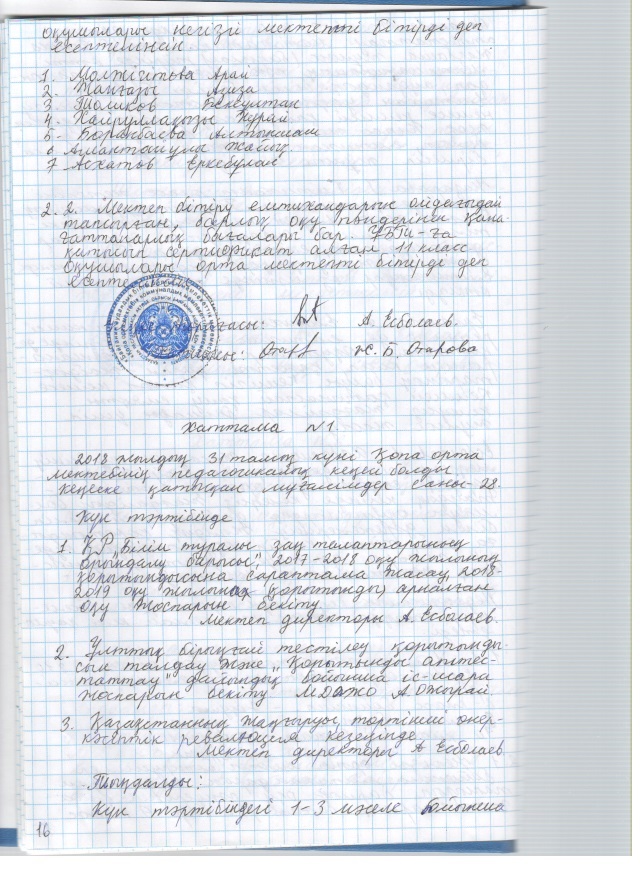 оқушылары негізгі мектепті бітірді деп
есептелінсін.
1. Молжігитова Арай
2. Жанғазы Азиза
3 Толиков Бексултан
4. Хайруллақызы Нұрай
5. Боранбаева Алтыншаш
6 Амантайұлы Жәнік
7 Асхатов Еркебулан
2. 2. Мектеп бітіру емтихандарын ойдағыдай
тапсырған, барлық оқу пәндерінен қана-
ғаттанарлық бағалары бар. ҰБТ-ға
қатысып сертификат алған 11 класс
оқушылары орта мектепті бітірді деп
есепте
төрағасы: А. Есболаев.
хатшысы: Ж. Б. Отарова
Хаттама №1.
2018 жылдың 31 тамыз күні Қопа орта
мектебінің педагогикалық кеңесі болды
Кеңеске қатысқан мұғалімдер саны - 28.
Күн тәртібінде
1. ҚР „Білім туралы заң талаптарының
орындалу барысы", 2017-2018 оқу жылының
қорытындысына сараптама жасау, 2018-
2019 оқу жылына (қорытынды) арналған
оқу жоспарын бекіту.
Мектеп директоры А. Есболаев.
2. Ұлттық бірыңғай тестілеу қорытынды-
сын талдау және „Қорытынды аттес-
таттау" дайындық бойынша іс-шара
жоспарын бекіту МДОЖО А Ожырай.
3. Қазақстанның жаңғыруы төртінші өнер-
кәсіптік революция кезеңінде
Мектеп директоры А Есболаев
Тыңдалды:
Күн тәртібіндегі 1-3 мәселе бойынша
16